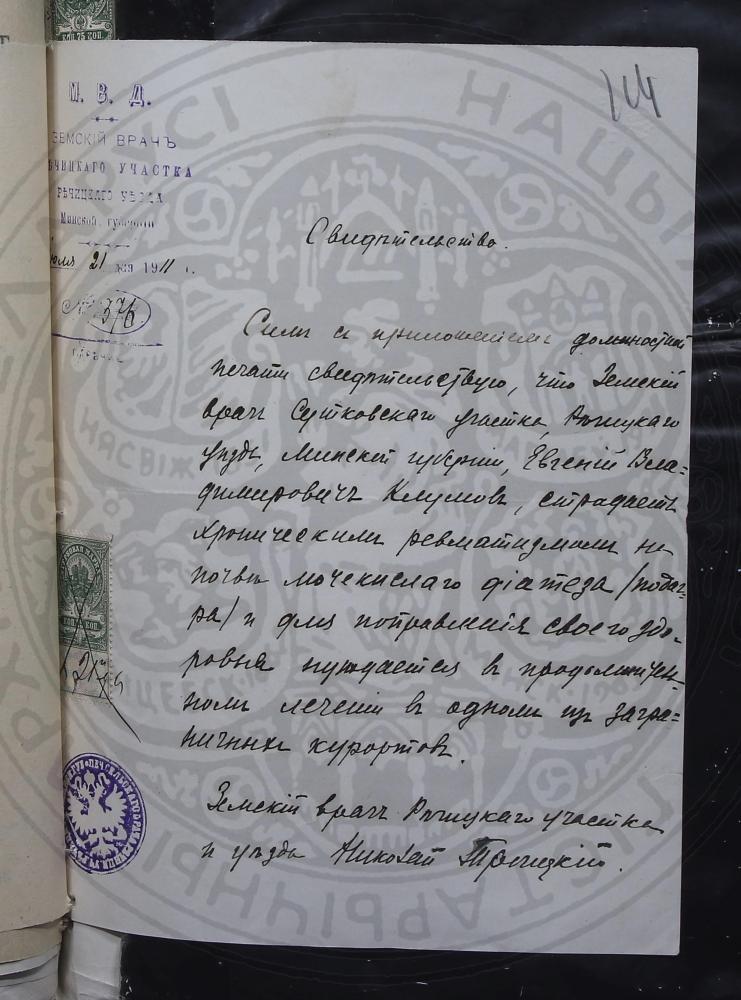 КОП. 75 КОП.
М. В. Д.
ЗЕМСКІЙ ВРАЧЪ
ѢЧИЦКАГО УЧАСТКА
РѢЧИЦКАГО УѢЗДА
Минской губерніи
21 дня 1911 г.
№ 376
Свидѣтельство.
Симъ съ приложеніемъ должностной
печати свидѣтельствую, что Земскій
врачъ Сутковскаго участка, Рѣчицкаго
уѣзда, Минской губерніи, Евгеній Вла-
димировичъ Клумовъ, страдаетъ
хроническимъ ревматизмомъ на
почвѣ мочекислаго діатеза /подаг-
ра/ и для поправленія своего здо-
ровья нуждается въ продолжитель-
номъ леченіи въ одномъ изъ загра-
ничныхъ курортовъ.
Земскій врачъ Рѣчицкаго участка
и уѣзда Николай Троицкій.
НАЦЫ
НЯСВІЖ